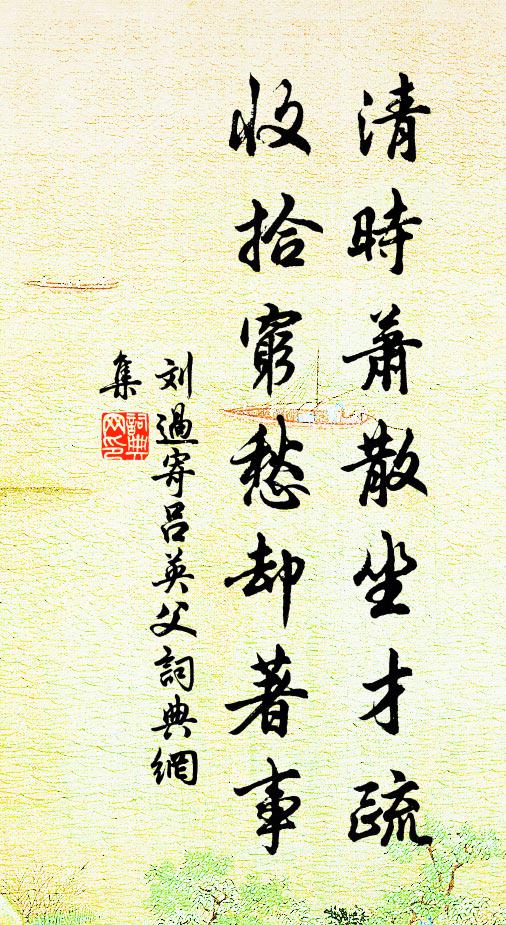 清時蕭散坐才疏
收拾窮愁却著事
刘過寄呂英父詞典網
集
詞典网印